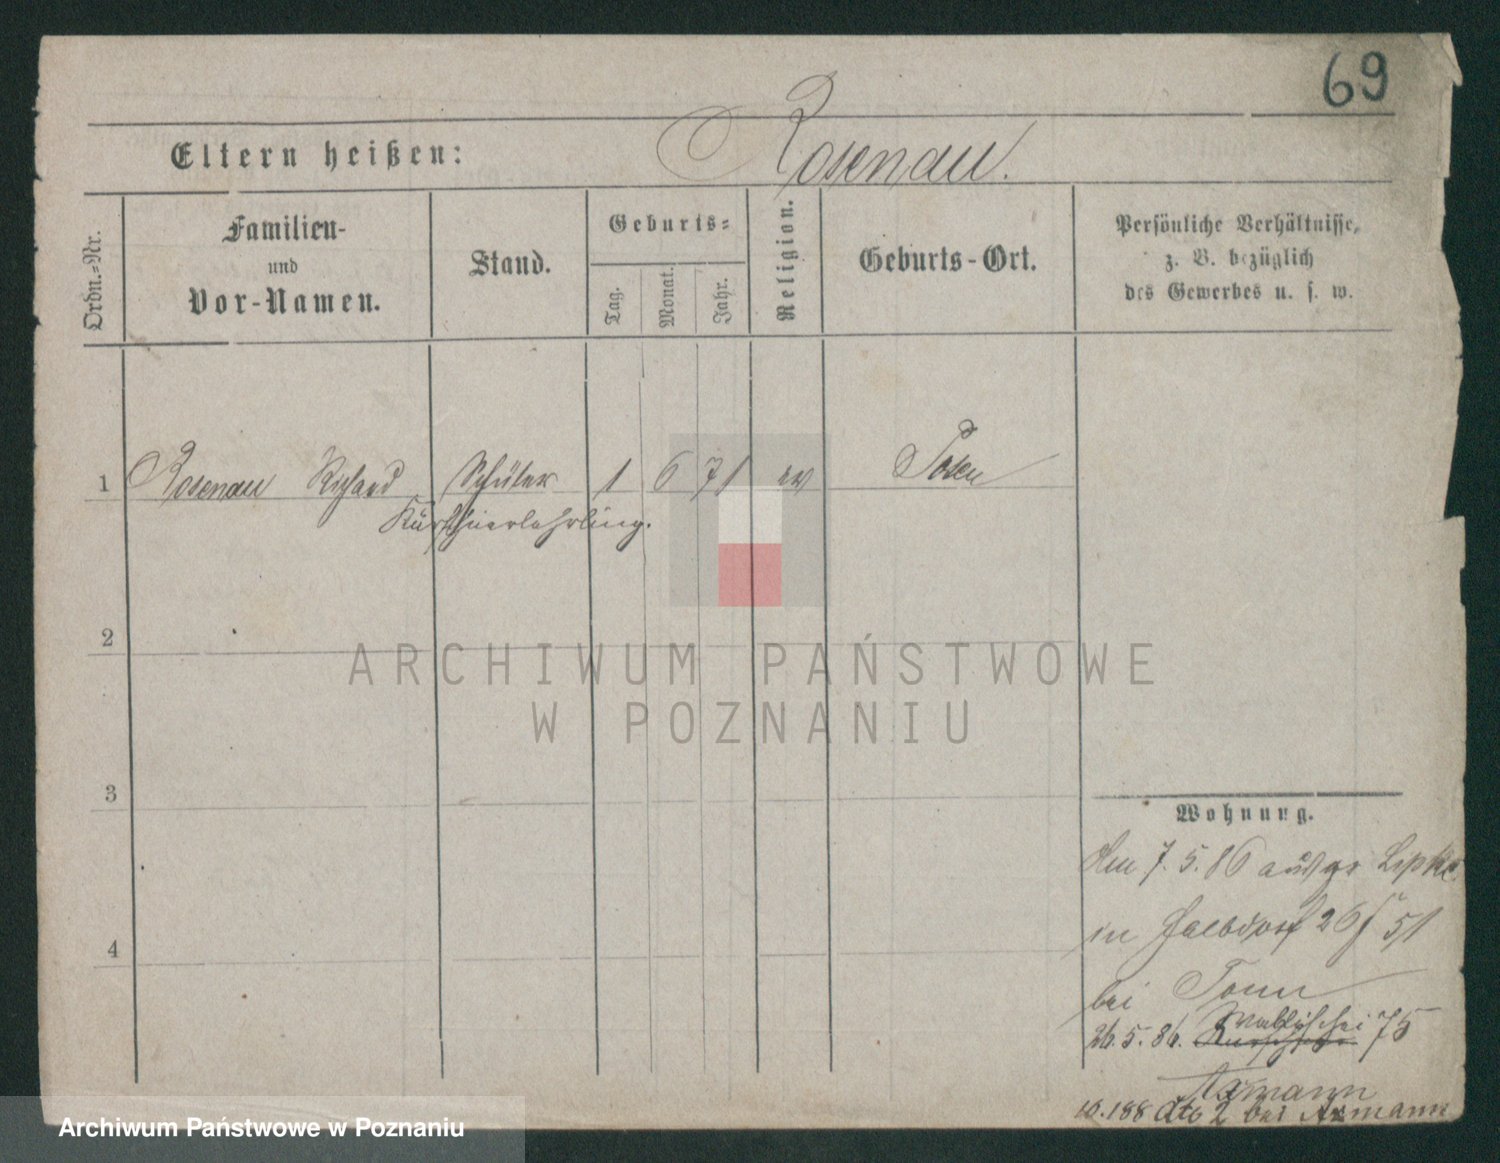 69
Eltern heißen: Rosenau.
Ordn.-Nr.
Familien-
und
Vor-Namen.
Stand.
Geburts-
Tag.
Monat.
Jahr.
Religion.
Geburts-Ort.
Persönliche Verhältnisse,
z. B. bezüglich
des Gewerbes u. s. w.
1 Rosenau Richard Schüler 1 6 71 ev Posen
Kürschnerlehrling.
2
ARCHIWUM PAŃSTWOWE
W POZNANIU
3
Wohnung.
7. 5. 86
4
in Halbdorf 26/51
bei Tonn
26. 5. 86. Wallischei 75
Axmann
2 bei Axmann
Archiwum Państwowe w Poznaniu